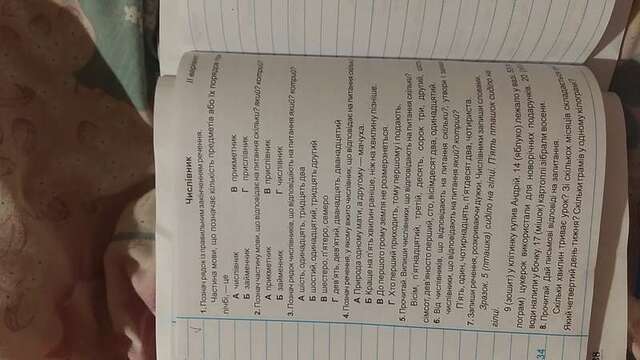 Числівник
ІІ варіант
1. Познач рядок із правильним закінченням речення.
Частина мови, що позначає кількість предметів або їх порядок при
лічбі, — це
А числівник
В прикметник
Б займенник
Г прислівник
2. Познач частину мови, що відповідає на питання скільки? який? котрий?
А прикметник
В прислівник
Б займенник
Г числівник
3. Познач рядок числівників, що відповідають на питання який? котрий?
А шість, одинадцять, тридцять два
Б шостий, одинадцятий, тридцять другий
В шестеро, п'ятеро, семеро
Г дев'ять, дев'ятий, дванадцять, дванадцятий
4. Познач речення, у якому вжито числівник, що відповідає на питання скільки?
А Природа одному мати, а другому — мачуха.
Б Краще на п'ять хвилин раніше, ніж на хвилину пізніше.
В До першого грому земля не розмерзнеться.
Г Хто перший приходить, тому першому і подають.
5. Прочитай. Випиши числівники, що відповідають на питання скільки?
Вісім, п'ятнадцятий, третій, десять, сорок три, другий,
сімсот, дев'яносто перший, сто, вісімдесят два, одинадцятий.
6. Від числівників, що відповідають на питання скільки?, утвори і
числівники, що відповідають на питання який? котрий?
П'ять, один, чотирнадцять, п'ятдесят два, чотириста.
7. Запиши речення, розкриваючи дужки. Числівники запиши словами.
Зразок. 5 (пташка) сиділо на гілці. П'ять пташок сиділо на
гілці.
9 (зошит) у клітинку купив Андрій. 14 (яблуко) лежало у вазі. 53
лограм) цукерок використали для новорічних подарунків. 20
води налили у бочку. 17 (мішок) картоплі зібрали восени.
8. Прочитай. Дай письмові відповіді на запитання.
Скільки хвилин триває урок? Зі скількох місяців складається
Який четвертий день тижня? Скільки грамів у одному кілограмі?
34